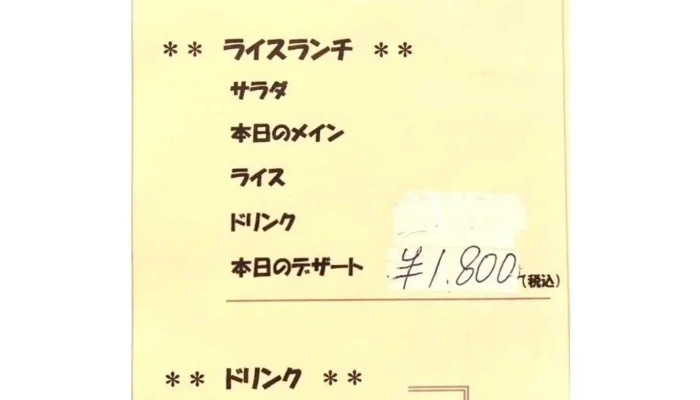 ** ライスランチ **
サラダ
本日のメイン
ライス
ドリンク
本日のデザート ¥1.800 (税込)
** ドリンク **